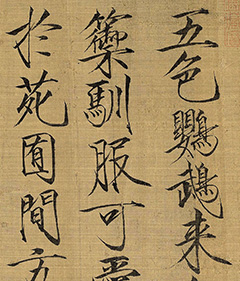 五色鸚鵡来
籞馴服可愛
於苑囿間方